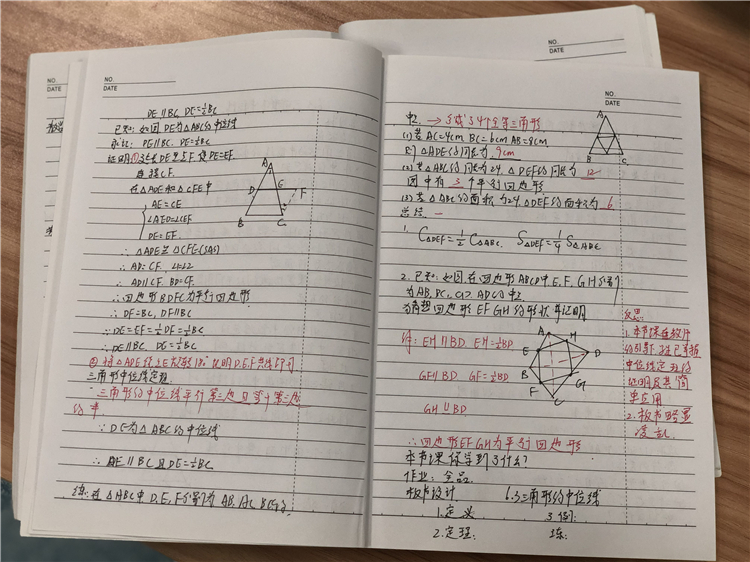 NO.
DATE
DE∥BC, DE=½BC
已知: 如图 DE为△ABC的中位线
求证: DE∥BC, DE=½BC
证明:①延长DE至点F, 使DE=EF.
连接CF.
在△ADE和△CFE中
AE=CE
∠AED=∠CEF
DE=EF
∴△ADE≌△CFE(SAS)
∴AD=CF, ∠1=∠2
∴AD∥CF. BD=CF.
∴四边形BDFC为平行四边形
∴DF=BC, DF∥BC
∵DE=EF=½DF=½BC
∴DE∥BC, DE=½BC
三角形中位线定理.
三角形的中位线平行第三边且等于第三边
的半
∵DE为△ABC的中位线
∴DE∥BC且DE=½BC.
练: 在△ABC中D, E, F分别为AB, AC, BC的
A
D
E
F
B
C
NO.
DATE
中点 → 分成了4个全等三角形
(1)若AC=4cm BC=6cm AB=8cm
则△ADE的周长为 9cm
(2)若△ABC的周长为24, △DEF的周长为 12
图中有 3 个平行四边形
(3)若△ABC的面积为24, △DEF的面积为 6
总结
1. C△DEF=½C△ABC, S△DEF=¼S△ABC
A
B
C
2. 已知: 如图, 在四边形ABCD中E, F, G, H分别
为AB, BC, CD, AD的中点
猜想四边形EFGH的形状并证明
EH∥BD. EH=½BD
GF∥BD GF=½BD
GH∥BD
∴四边形EFGH为平行四边形
A
H
E
D
B
G
F
C
反思:
1. 本节课在教师
的引导下, 学生已掌握
中位线定理的
证明及其简
单应用
2. 板书略显
凌乱.
本节课你学到了什么?
作业: 全品
板书设计 6.3三角形的中位线
1. 定义 3 例:
2. 定理: 练: